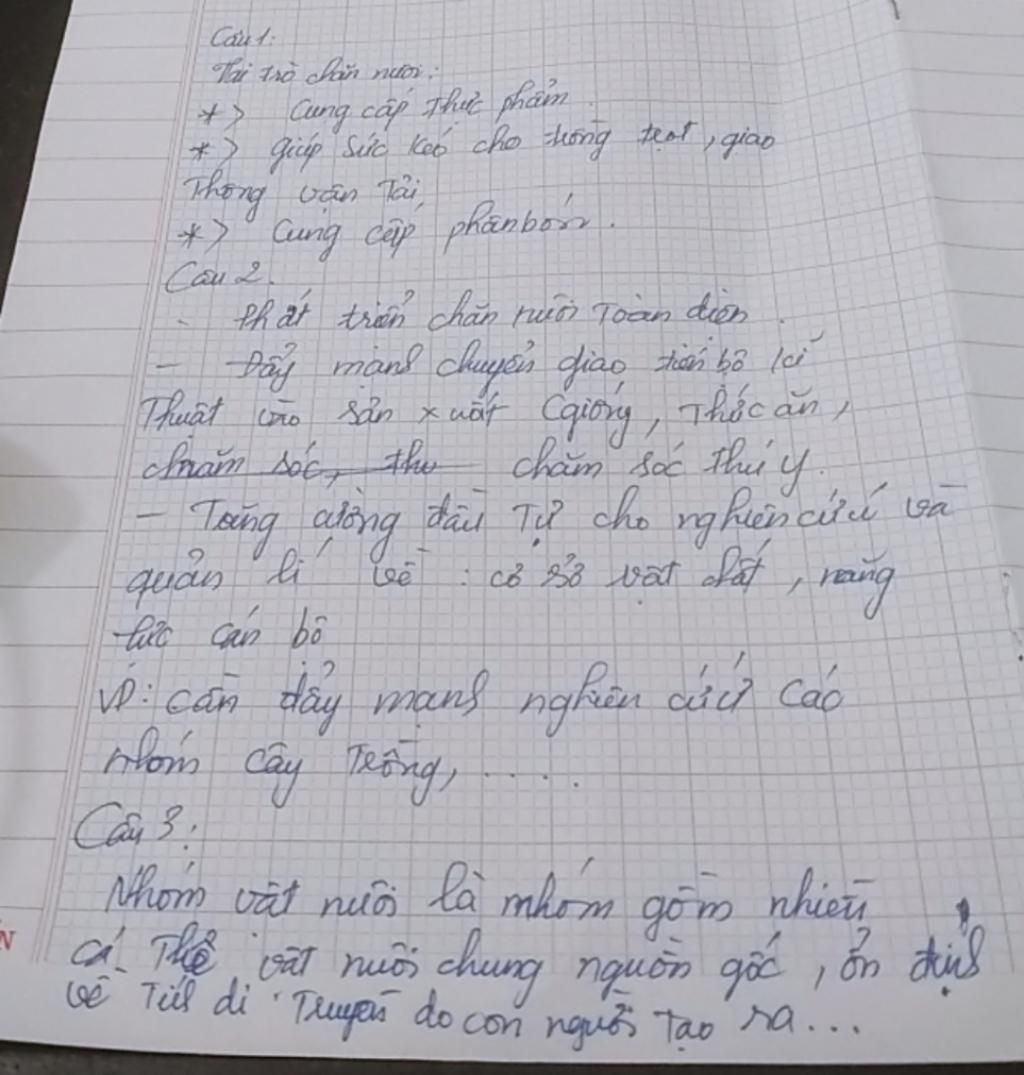 Câu 1:
Vai trò chăn nuôi:
*> Cung cấp thực phẩm.
*> giúp sức kéo cho trồng trọt, giao
Thông vận Tải,
*> Cung cấp phân bón.
Câu 2.
- Phát triển chăn nuôi Toàn diện.
- Đẩy mạnh chuyển giao tiến bộ kĩ
Thuật vào sản xuất (giống, Thức ăn,
chăm sóc, thu chăm sóc thú y.
- Tăng cường đầu Tư cho nghiên cứu và
quản lí về : cơ sở vật chất, năng
lực cán bộ
VD: cần đẩy mạnh nghiên cứu các
nhóm cây Trồng, .....
Câu 3:
Nhóm vật nuôi là nhóm gồm nhiều
cá Thể vật nuôi chung nguồn gốc, ổn định
về Tính di Truyền do con người Tạo ra...
N